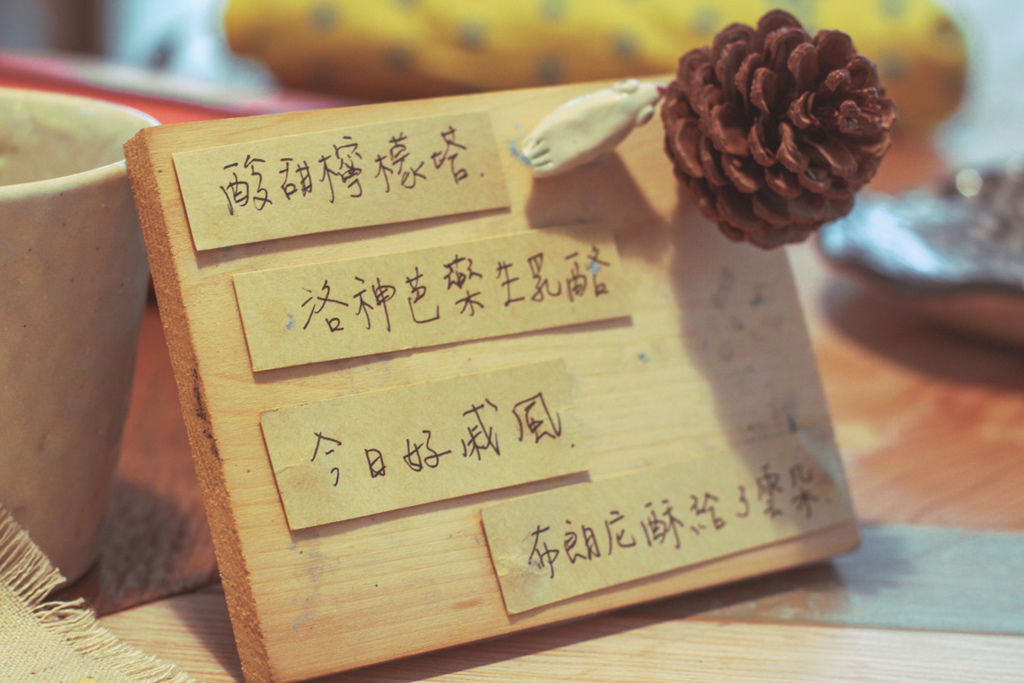 酸甜檸檬塔.
洛神芭樂生乳酪
今日好戚風.
布朗尼酥給了雲朵